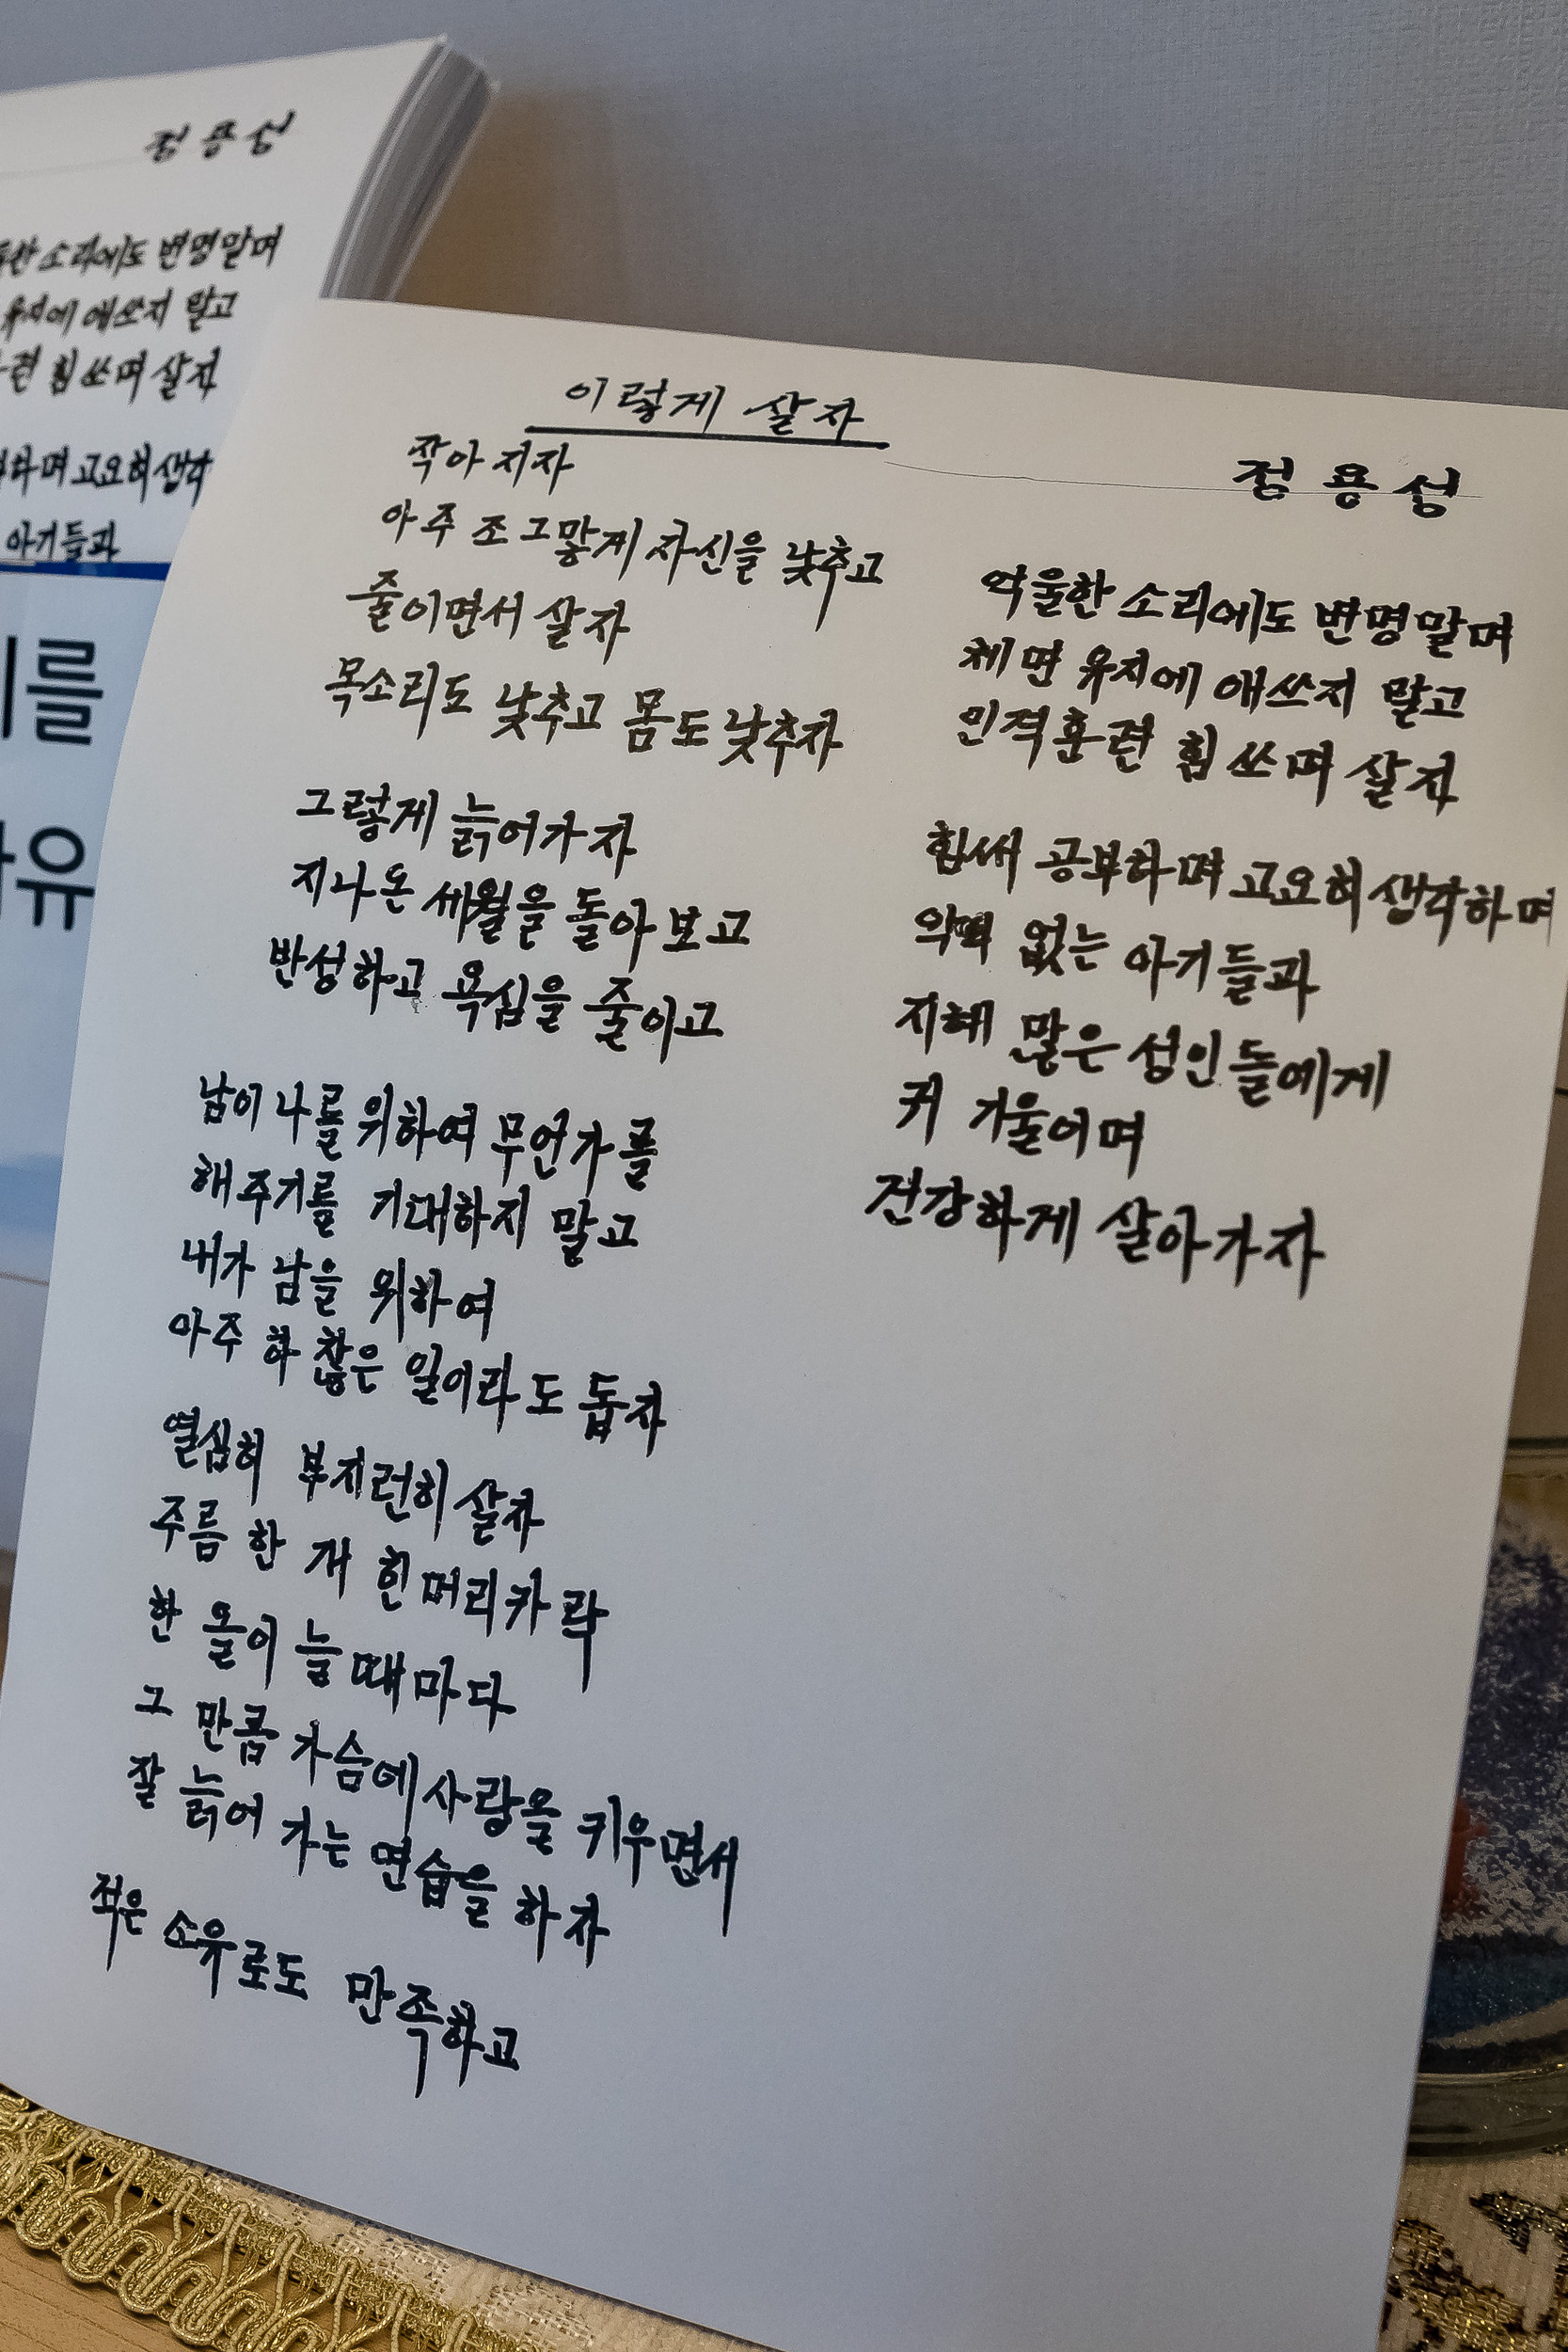 정용성
소리에도 변명말며
유지에 애쓰지 말고
련 힘쓰며 살자
며 고요히 생각
아기들과
를
유
이렇게 살자
정용성
작아지자
아주 조그맣게 자신을 낮추고
줄이면서 살자
목소리도 낮추고 몸도 낮추자
그렇게 늙어가자
지나온 세월을 돌아보고
반성하고 욕심을 줄이고
남이 나를 위하여 무언가를
해주기를 기대하지 말고
내가 남을 위하여
아주 하찮은 일이라도 돕자
열심히 부지런히 살자
주름 한 개 힌머리카락
한 올이 늘때마다
그 만큼 가슴에 사랑을 키우면서
잘 늙어 가는 연습을 하자
적은 소유로도 만족하고
억울한 소리에도 변명말며
체면 유지에 애쓰지 말고
인격훈련 힘쓰며 살자
힘써 공부하며 고요히 생각하며
악떽 없는 아기들과
지혜 많은 성인들에게
귀 기울이며
건강하게 살아가자